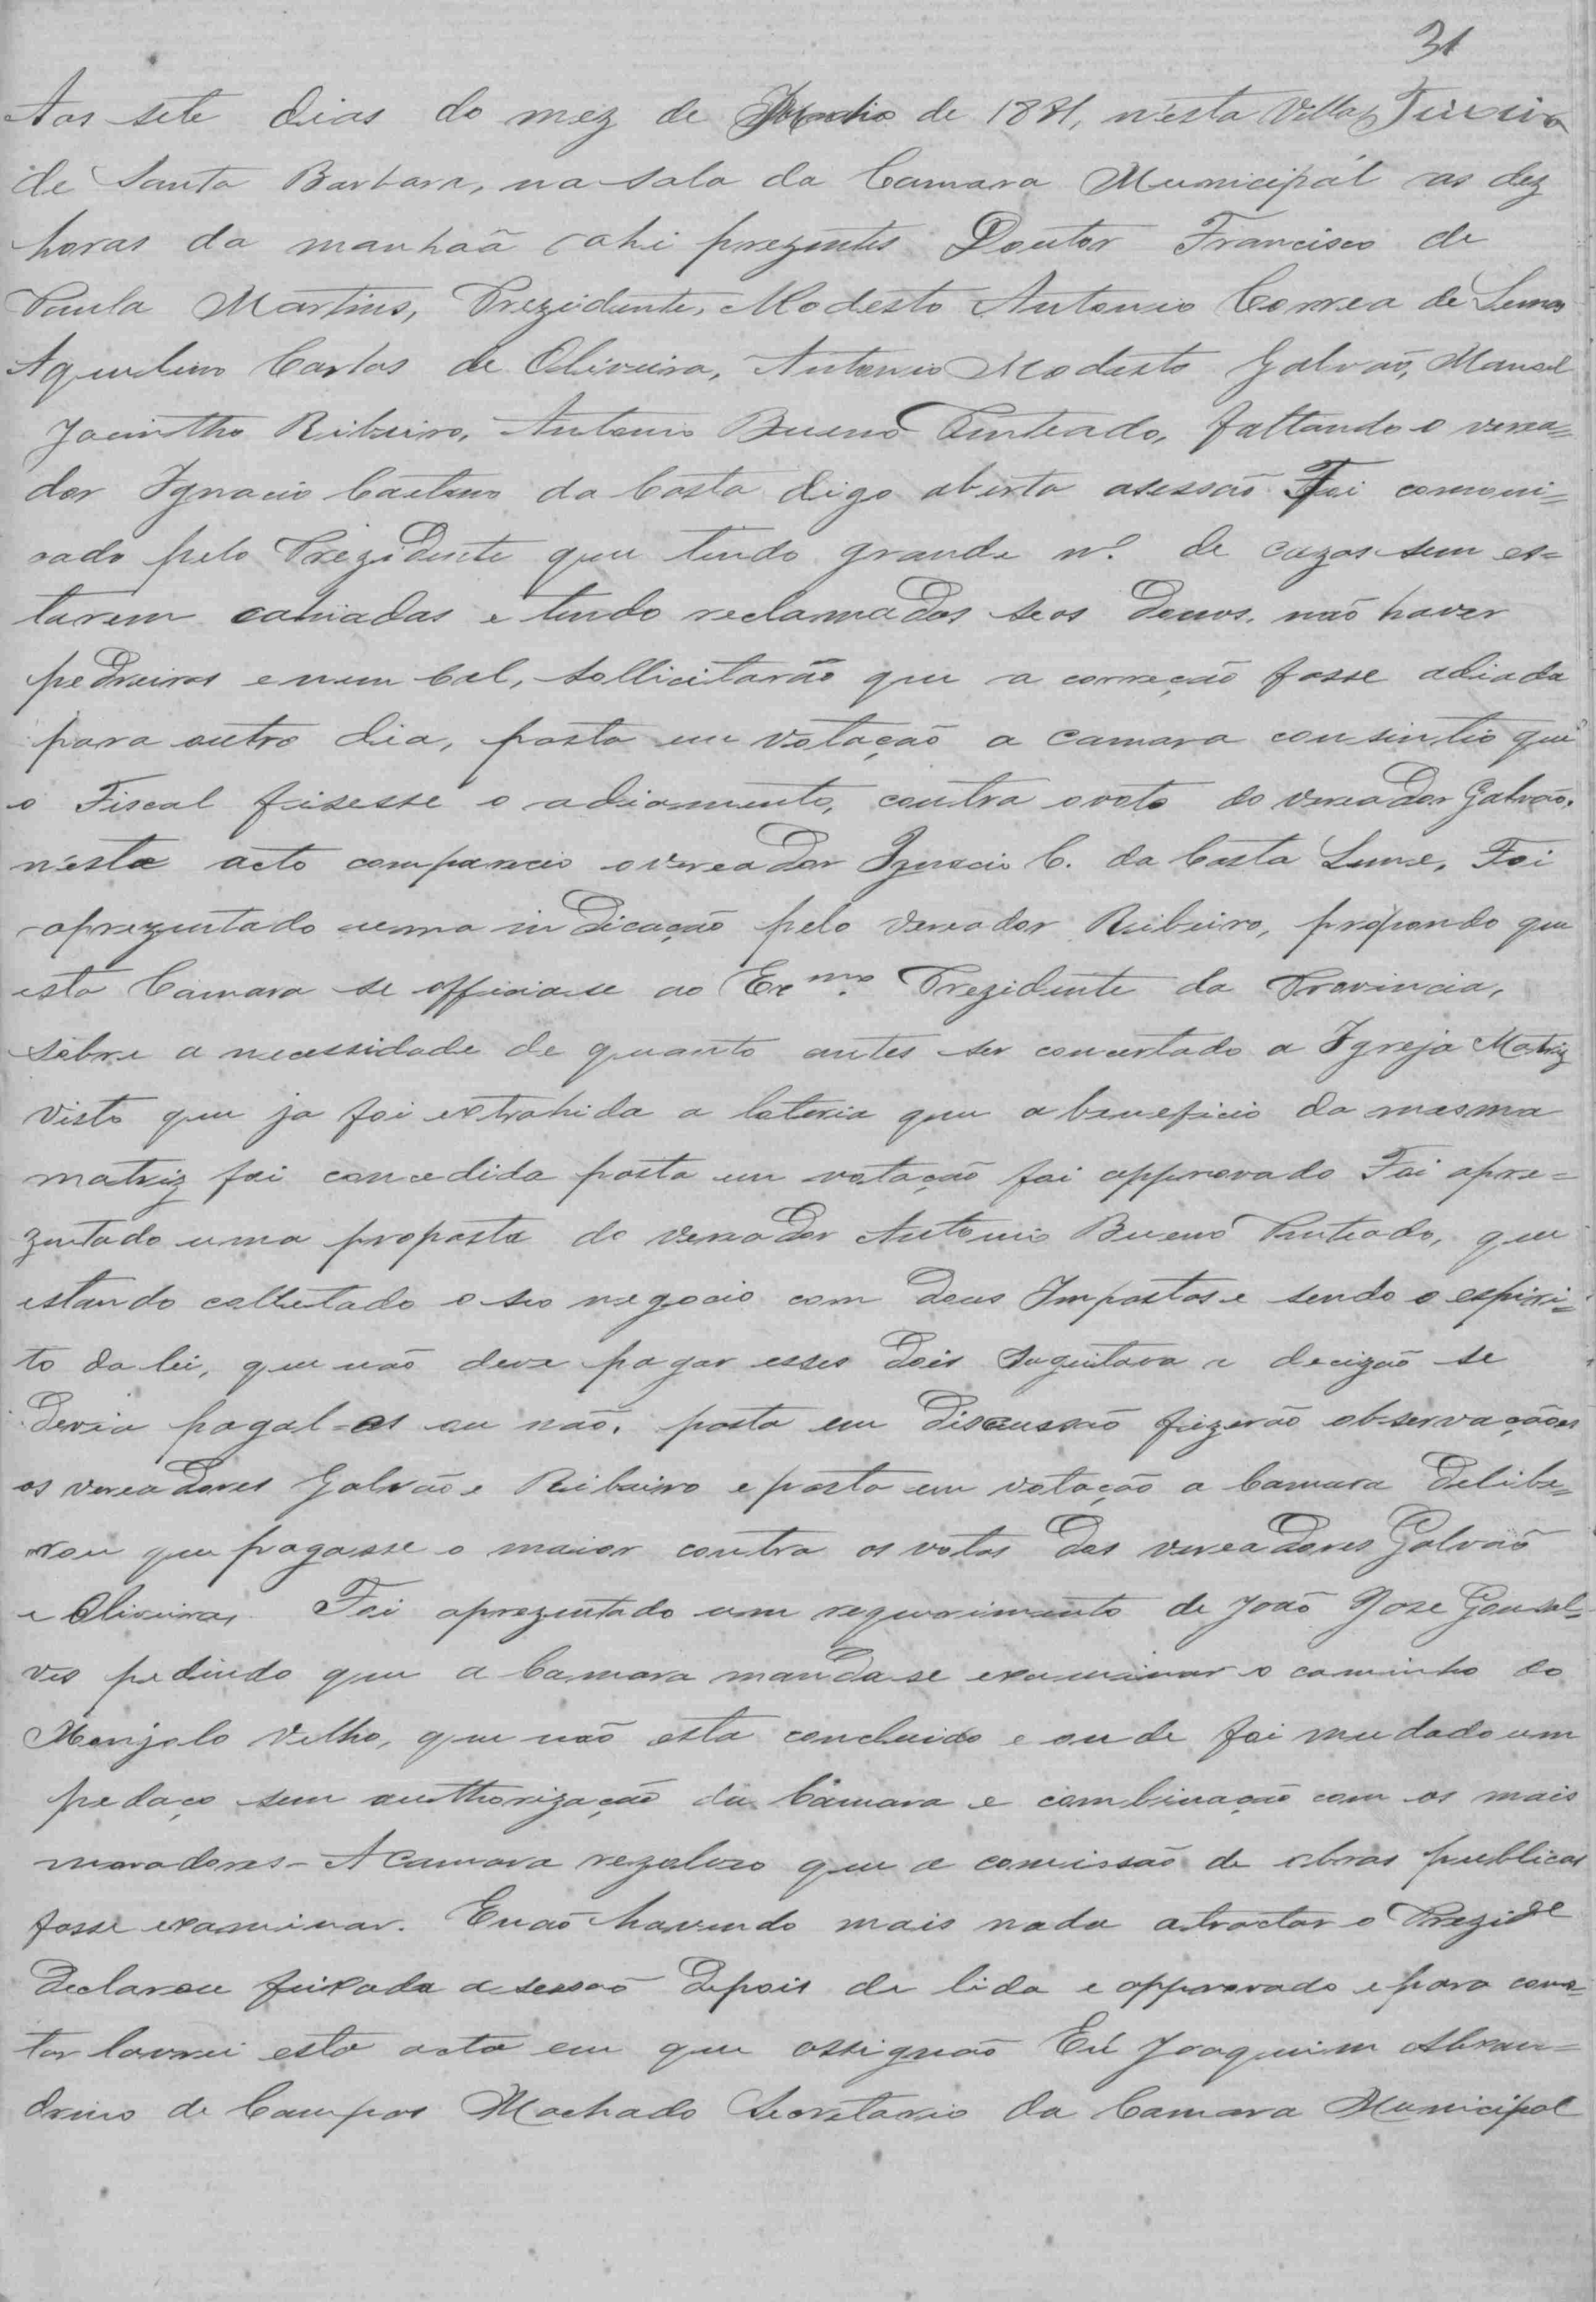 31
Aos sete dias do mez de Junho de 1881, n'esta Villa
de Santa Barbara, na sala da Camara Municipal as dez
horas da manhaã ahi prezentes Doutor Francisco de
Paula Martins, Prezidente, Modesto Antonio Correa de Lemos
Aquelino Carlos de Oliveira, Antonio Modesto Galvaõ, Manoel
Jacintho Ribeiro, Antonio Bueno Penteado, faltando o verea=
dor Ignacio Caetano da Costa digo aberta asessaõ Foi comoni=
cado pelo Prezidente que tendo grande nº. de cazas sem es=
tarem cahiadas e tendo reclamados seos donos, naõ haver
pedreiros enem Cal, sollicitaraõ que a correçaõ fosse adiada
para outro dia, posta em votaçaõ a camara consintio que
o Fiscal fisesse o adiamento, contra ovoto do vereador Galvaõ.
n'esta acto compareceo overeador Ignacio C. da Costa Leme, Foi
aprezentado uma indicaçaõ pelo vereador Ribeiro, propondo que
esta Camara se officiase ao Exmo. Prezidente da Provincia,
sobre a necessidade de quanto antes ser concertado a Igreja Matriz
visto que ja foi extrahida a loteria que a beneficio da mesma
matriz foi concedida posta em votaçaõ foi approvado Foi apre=
zentado uma proposta do vereador Antonio Bueno Penteado, que
estando colletado o seo negocio com dous Impostos e sendo o espiri=
to da lei, que naõ deve pagar esses dois sugeitava a decizaõ se
devia pagal-os ou naõ. posta em discussaõ fizeraõ observaçaões
os vereadores Galvaõ e Ribeiro eposta em votaçaõ a Camara delibe=
rou que pagasse o maior contra os votos dos vereadores Galvaõ
e Oliveira, Foi aprezentado um requerimento de Joaõ Jose Gonsal=
ves pedindo que a Camara mandase examinar o caminho do
Monjolo Velho, que naõ esta concluido e onde foi mudado um
pedaço sem authorizaçaõ da Câmara e combinaçaõ com os mais
moradores - A Camara rezolveo que a comissaõ de obras publicas
fosse examinar. Enaõ havendo mais nada atractar o Prezide
declarou feixada a sessaõ depois de lida e approvado epara cons=
tar lavrei esta acta em que assignaõ Eú Joaquim Alexan=
drino de Campos Machado Secretario da Camara Municipal